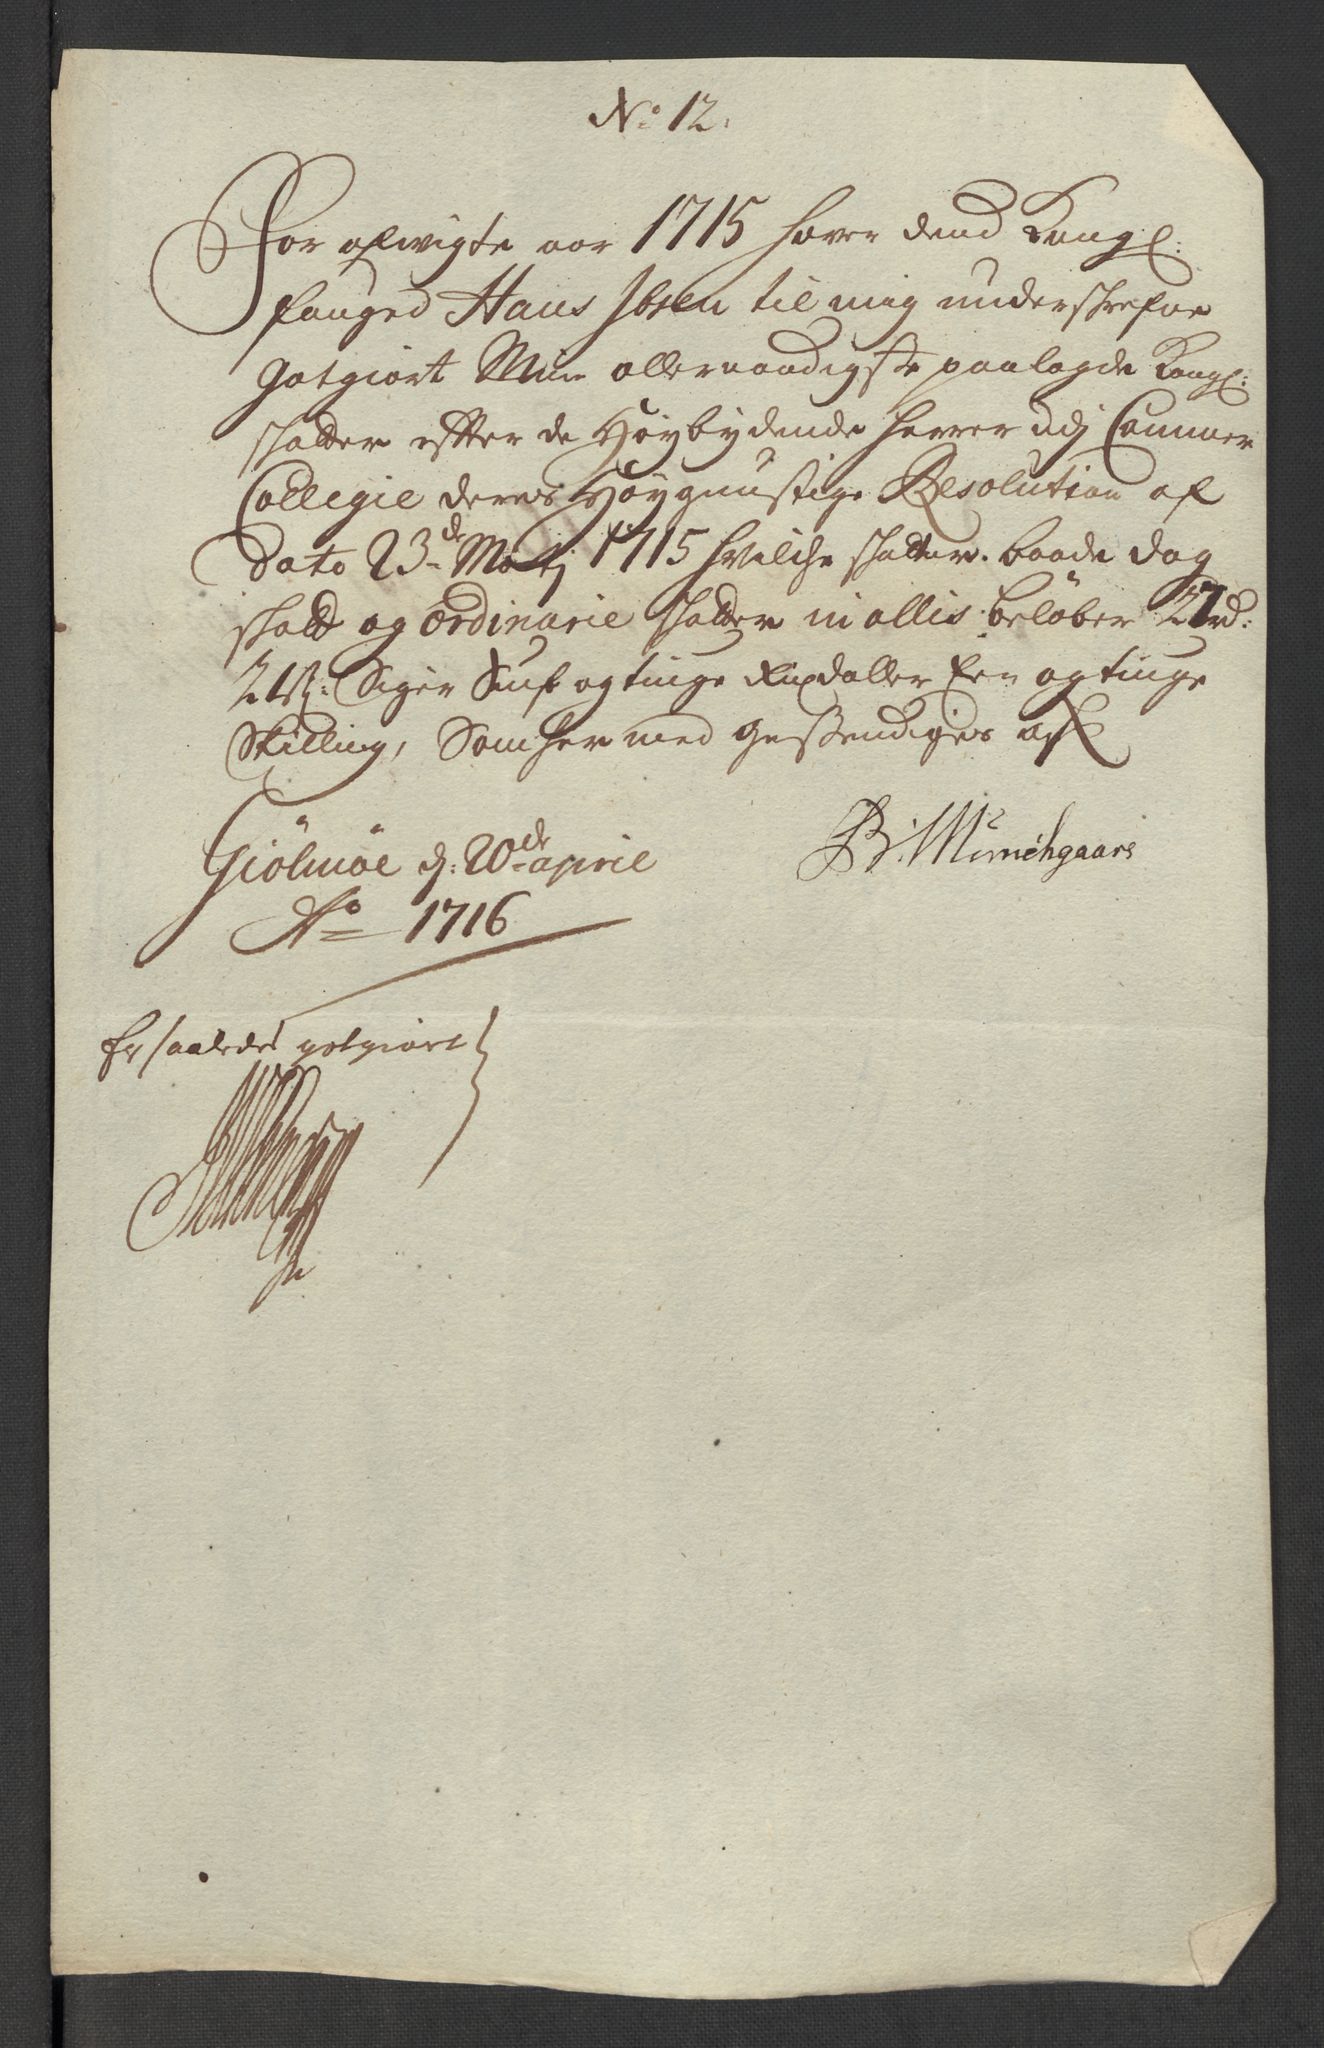 No 12.
For afwigte aar 1715 hafver dend Kongl:
fouged Hans Ibsen til mig underschrefne
Gotgiort Mine allernaadigste paalagde Kongl:
schatter efter de Høybydende herrer udj Cammer
Collegie deres Høygunstige Resolution af
Dato 23de Martj 1715 hvilche schatter baade dag
schatt og ordinarie schatter in allis beløber 27 rd:
21 s: Siger Siuf og tiuge Rixdaller Een og tiuge
Skilling, Som her med gestendiges af
Giölmöe d: 20de april
Ao 1716
B: Münchgaard
Er saaledes gotgiort